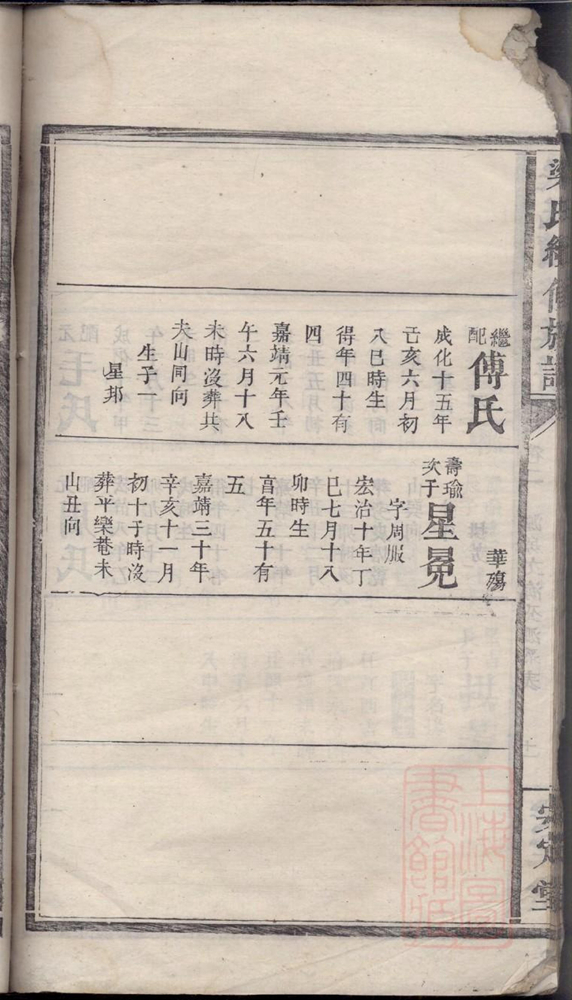 繼配傅氏
成化十五年
己亥六月初
八巳時生
得年四十有
四
嘉靖元年壬
午六月十八
未時沒葬共
夫山同向
生子
星邦
華殤
壽瑜次子星冕
字周服
宏治十年丁
巳七月十八
卯時生
亯年五十有
五
嘉靖三十年
辛亥十一月
初十子時沒
葬平欒菴未
山丑向
氏續修族譜
安定堂
上海圖書館藏